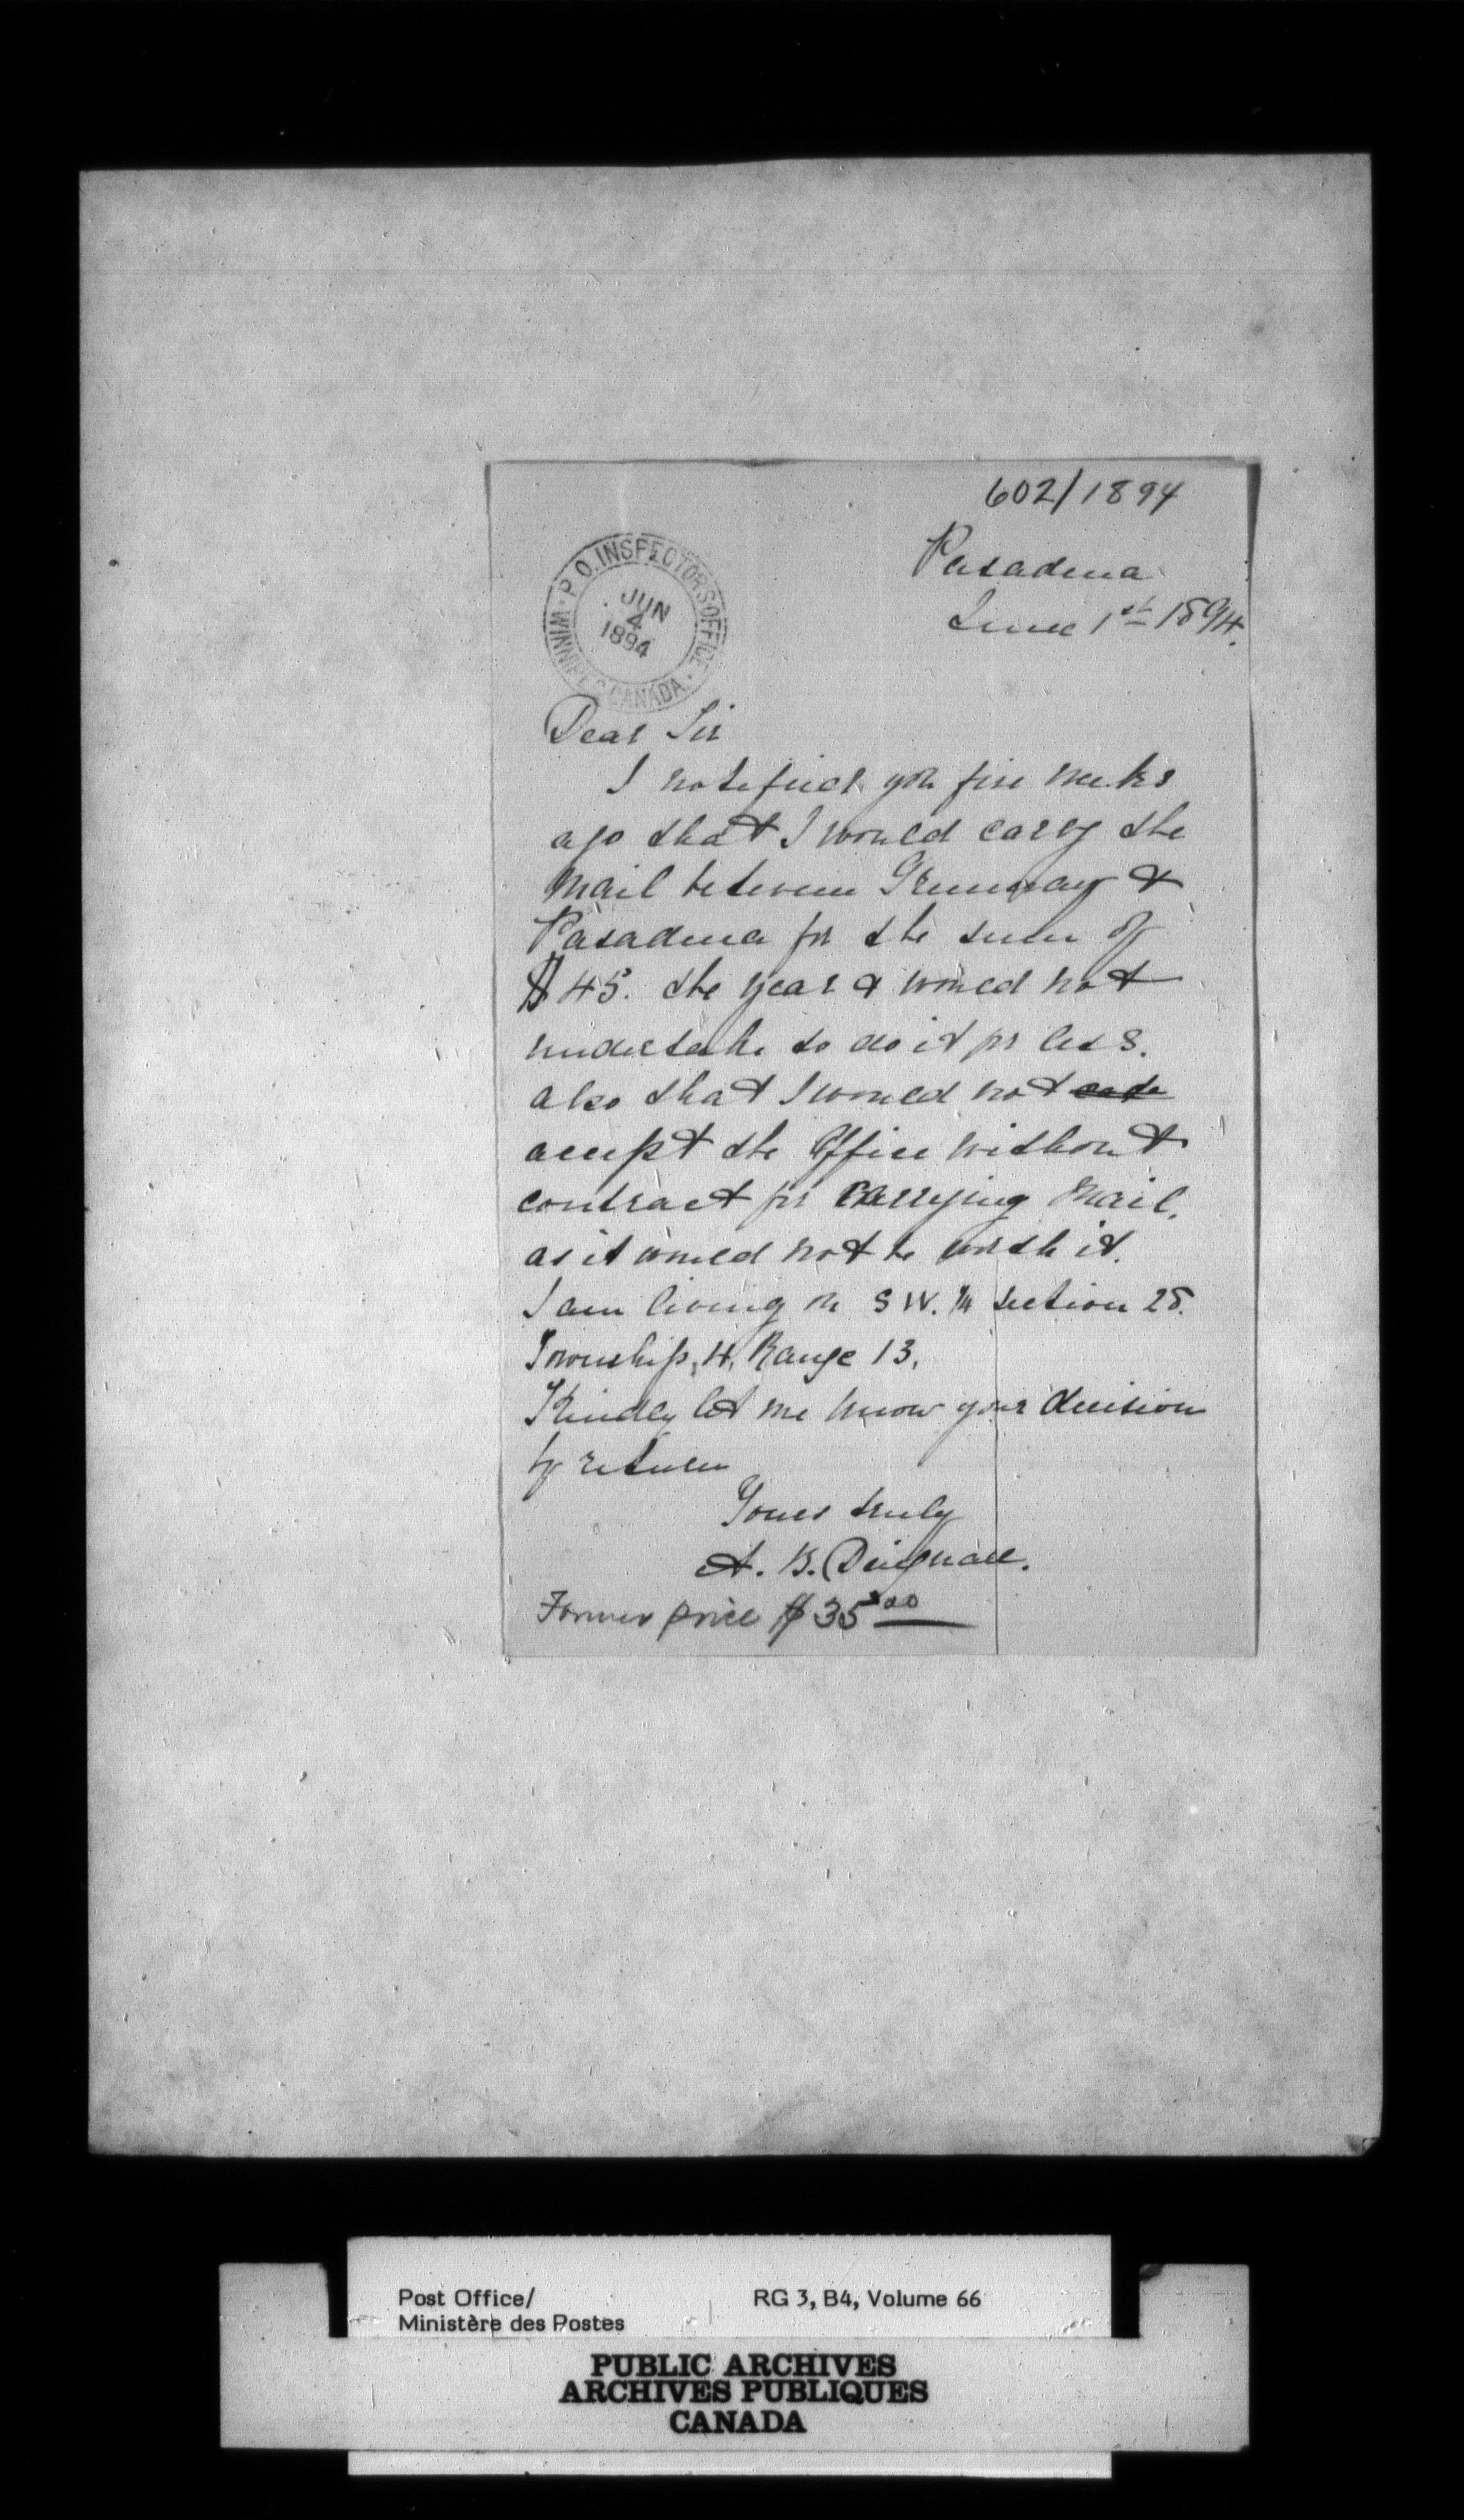 602/1894
Pasadena
June 1st 1894.
P.O. INSPECTORS OFFICE
WINNIPEG CANADA
JUN
4
1894
Dear Sir
I notified you five weeks
ago that I would carry the
Mail between Greenway &
Pasadena for the sum of
$45. the year & would not
undertake to do it for less.
also that I would not
accept the Office without
contract for carrying Mail.
as it would not be worth it.
I am living on S W. 1/4 Section 28.
Township, 4, Range 13.
Kindly let me know your decision
by return
Yours truly
A. B. Dingwall.
Former price $35.00
Post Office/
Ministère des Postes
RG 3, B4, Volume 66
PUBLIC ARCHIVES
ARCHIVES PUBLIQUES
CANADA